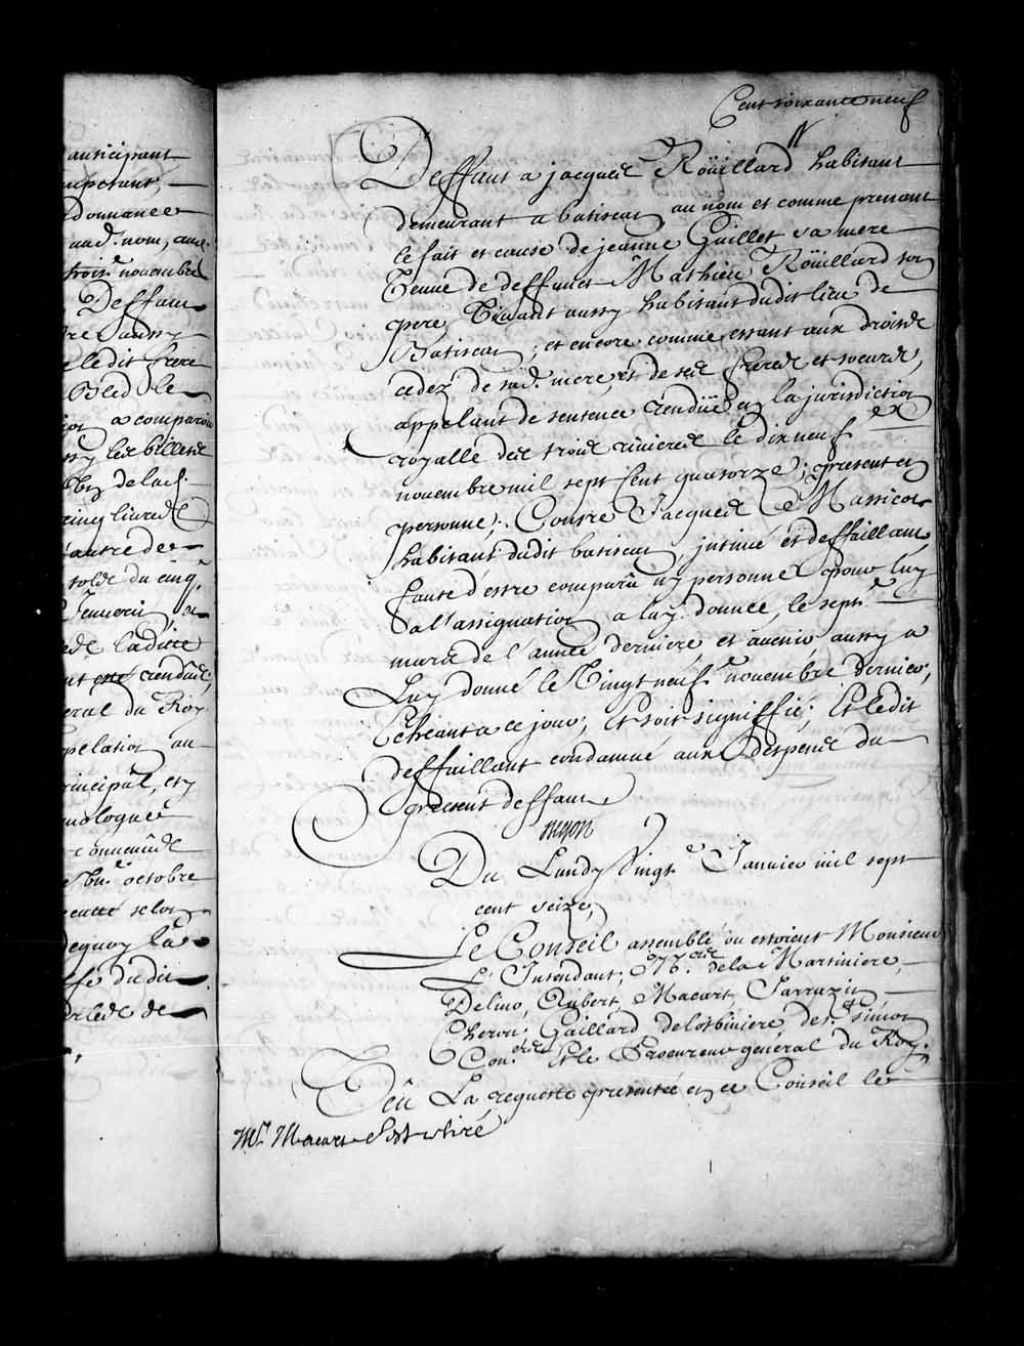 anticipant
donnance
aud. nom, aud.
troise novembre
Deffau
re aussy
e ledit frere
Bled le
a comparoir
sy les billets
de lad.
cinq livres
l'autre de
solde du cinq
Janvier
ladite
crendüe
eral du Roy
pelation au
rincipal, et
mologuée
octobre
selon
dequoy la
fé dudit
de
Cent soixante neuf
Deffaut a jacques Roüillard habitant
demeurant a batiscan au nom et comme prenant
le fait et cause de jeanne Guillet sa mere
Veuve de deffunct Mathieu Roüillard son
pere Vivant aussy habitant dudit lieu de
Batiscan; et encore comme estant aux droits
cedez de sad. mere et de ses freres et soeurs,
appelant de sentence rendüe en la jurisdiction
royalle des trois rivieres le dix neuf e
novembre mil sept Cent quatorze; present en
personne; Contre Jacques Le Massicot
habitant dudit batiscan, intimé et deffaillant,
faute d'estre comparû ny personne pour luy
a l'assignation a luy donnée, le sept e
mars de l'année derniere, et avenir aussy a
Luy donné le Vingt neuf e novembre dernier,
Echéant a ce jour; Et soit signiffié; Et ledit
deffaillant condamné aux despens du
present deffaut
Du Lundy Vingt e Janvier mil sept
cent seize,
Le Conseil assemblé ou estoient Monsieur
L'Intendant; de la Martiniere,
Delino, Aubert, Macart, Sarrazin
Cheron Gaillard delotbiniere, de St. simon
Con.ers Et le Procureur general du Roy.
Veu La requeste presentée en ce Conseil le
Mr. Macart s'est retiré